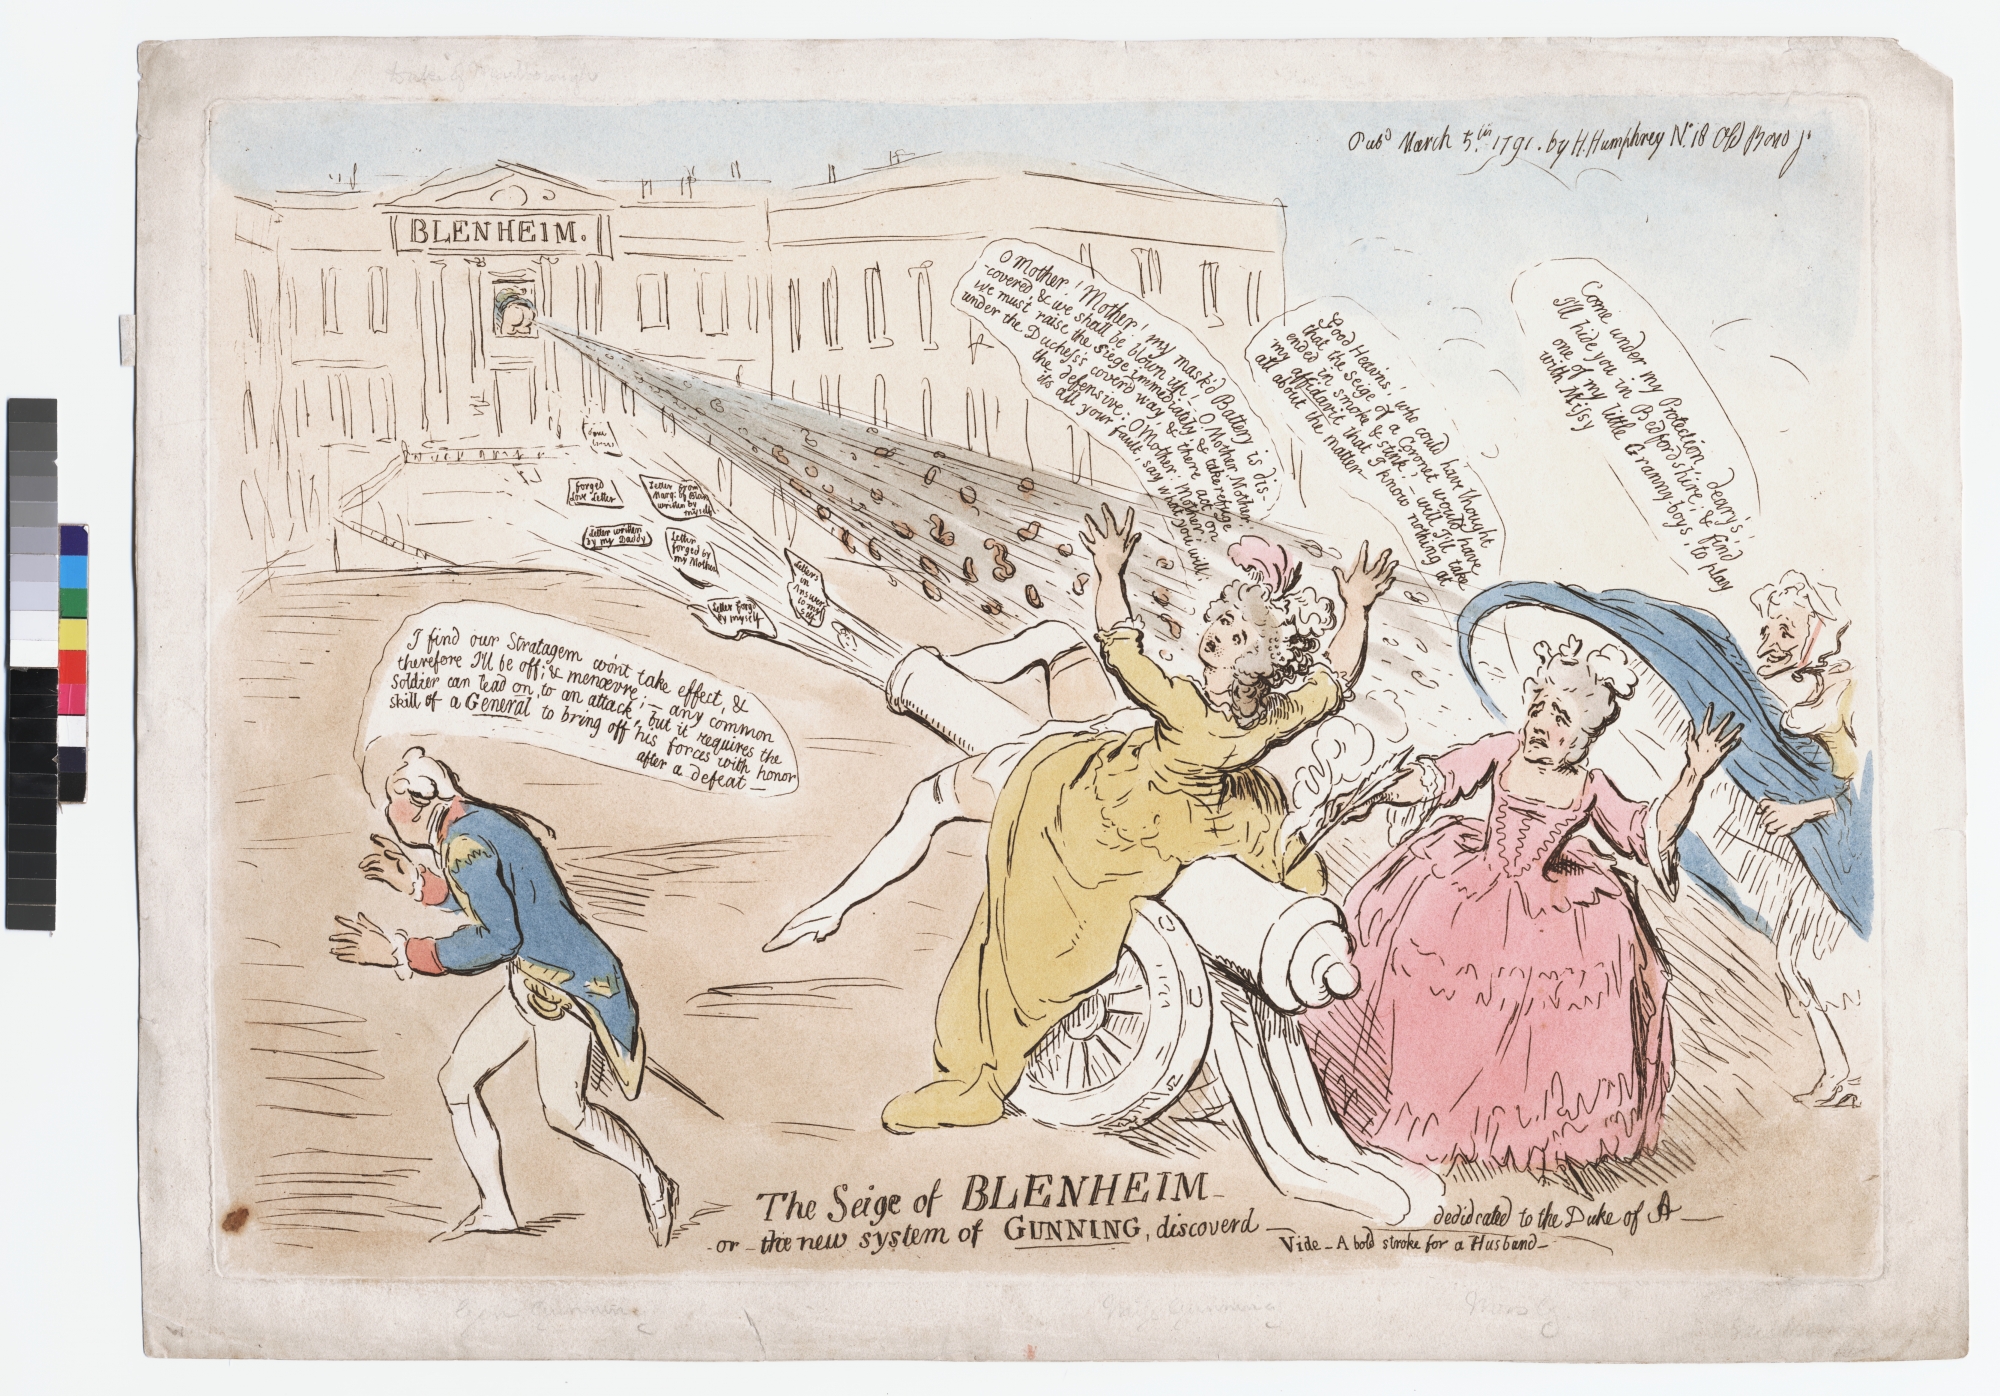 Pubd March 5th 1791. by H. Humphrey No. 18 Old Bond
BLENHEIM.
O Mother! Mother! my mask'd Battery is dis-
-coverd, & we shall be blown up! O Mother, Mother,
we must raise the siege immediately & take refuge
under the Duchess's coverd way, & there act on
the defensive: O Mother! Mother!
its all your fault, say what you will.
Good Heavns! who could have thought
that the seige of a Coronet would have
ended in smoke & stink! – will I'll take
my affidavit that I know nothing at
all about the matter
Come under my Protection, deary's!
I'll hide you in Bedfordshire; & find
one of my little Granny-boys, to play
with Missy
forged
Love Letter
Letter from
Marq: of Blan
written by
myself
Letter written
by my Daddy
Letter
forged by
my Mother
Letters
in
Answer
to my
self
Letter forgd
by myself
I find our Stratagem won't take effect, &
therefore I'll be off, & menœvre; – any common
Soldier can lead on, to an attack, but it requires the
skill of a General to bring off his forces with honor
after a defeat –
The Seige of BLENHEIM –
or – the new system of GUNNING, discoverd –
dedidcated to the Duke of A –
Vide – A bold stroke for a Husband –
Gen Gunning
Miss Gunning